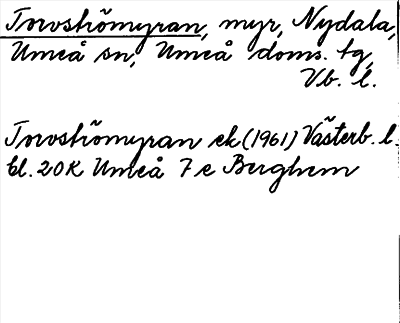 Torvströmyran, myr, Nydala,
Umeå sn, Umeå doms. tg,
Vb. l.
Torvströmyran ek (1961) Västerb. l.
bl. 20K Umeå 7 e Berghem